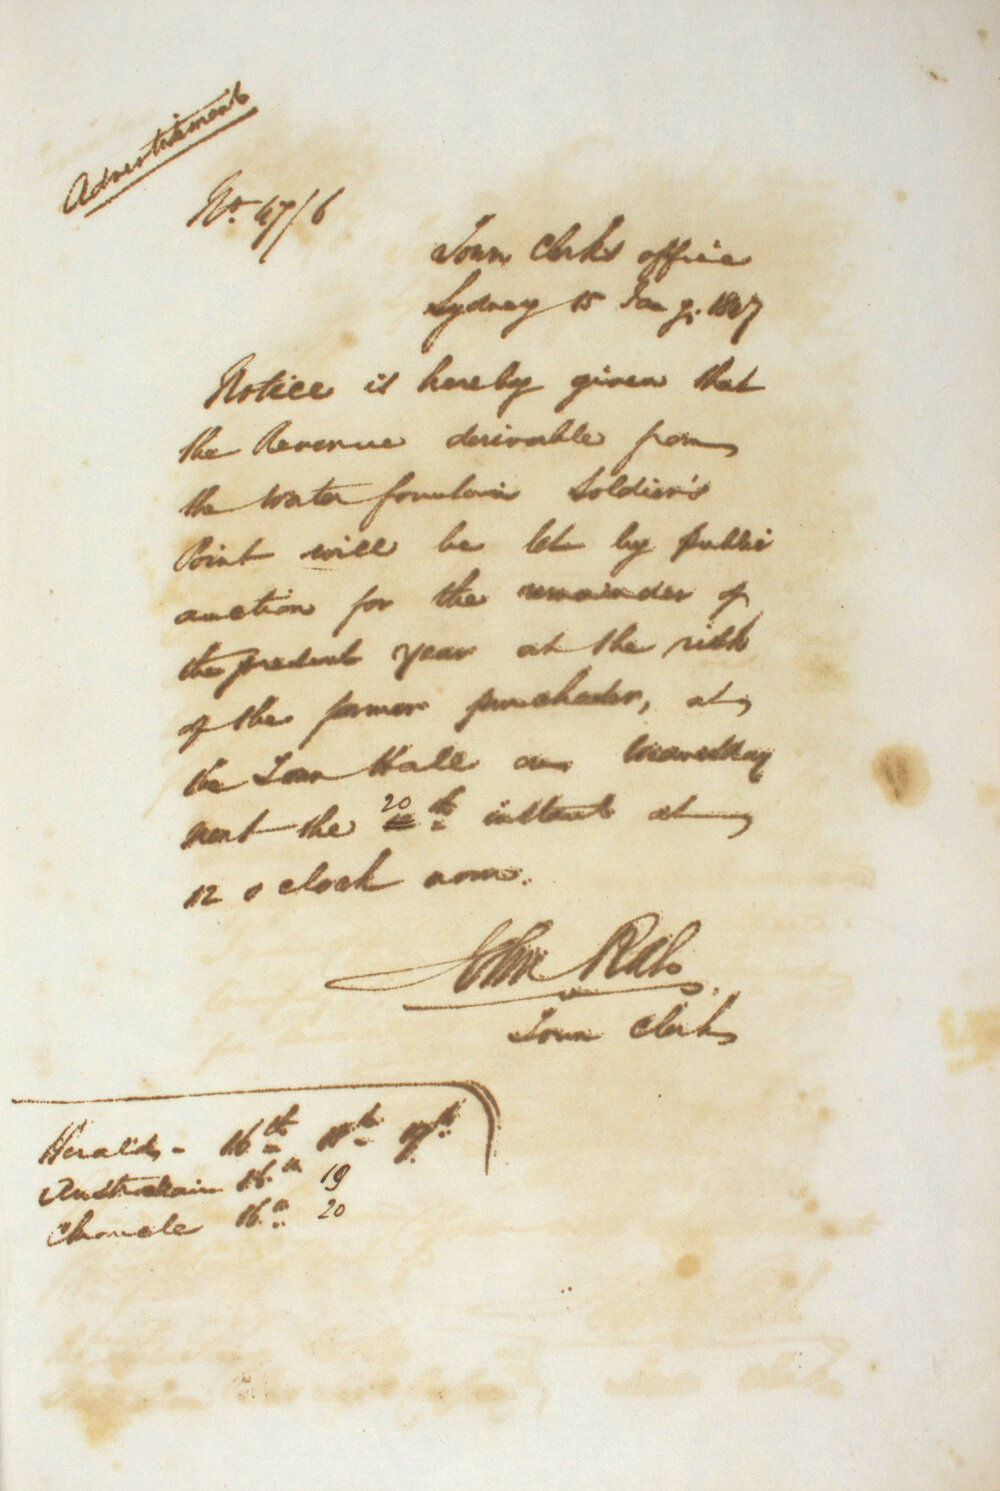 Advertisement
No. 47/6
Town Clerks office
Sydney 15 Jany. 1847
Notice is hereby given that
the Revenue derivable from
the Water fountain Soldier's
Point will be let by public
auction for the remainder of
the present year at the risk
of the former purchaser, at
the Town Hall on Wednesday
next the 20 th instant at
12 o clock noon.
John Rae
Town Clerk
Heralds - 16th 18th 19th
Australian 16." 19
Chronicle 16." 20